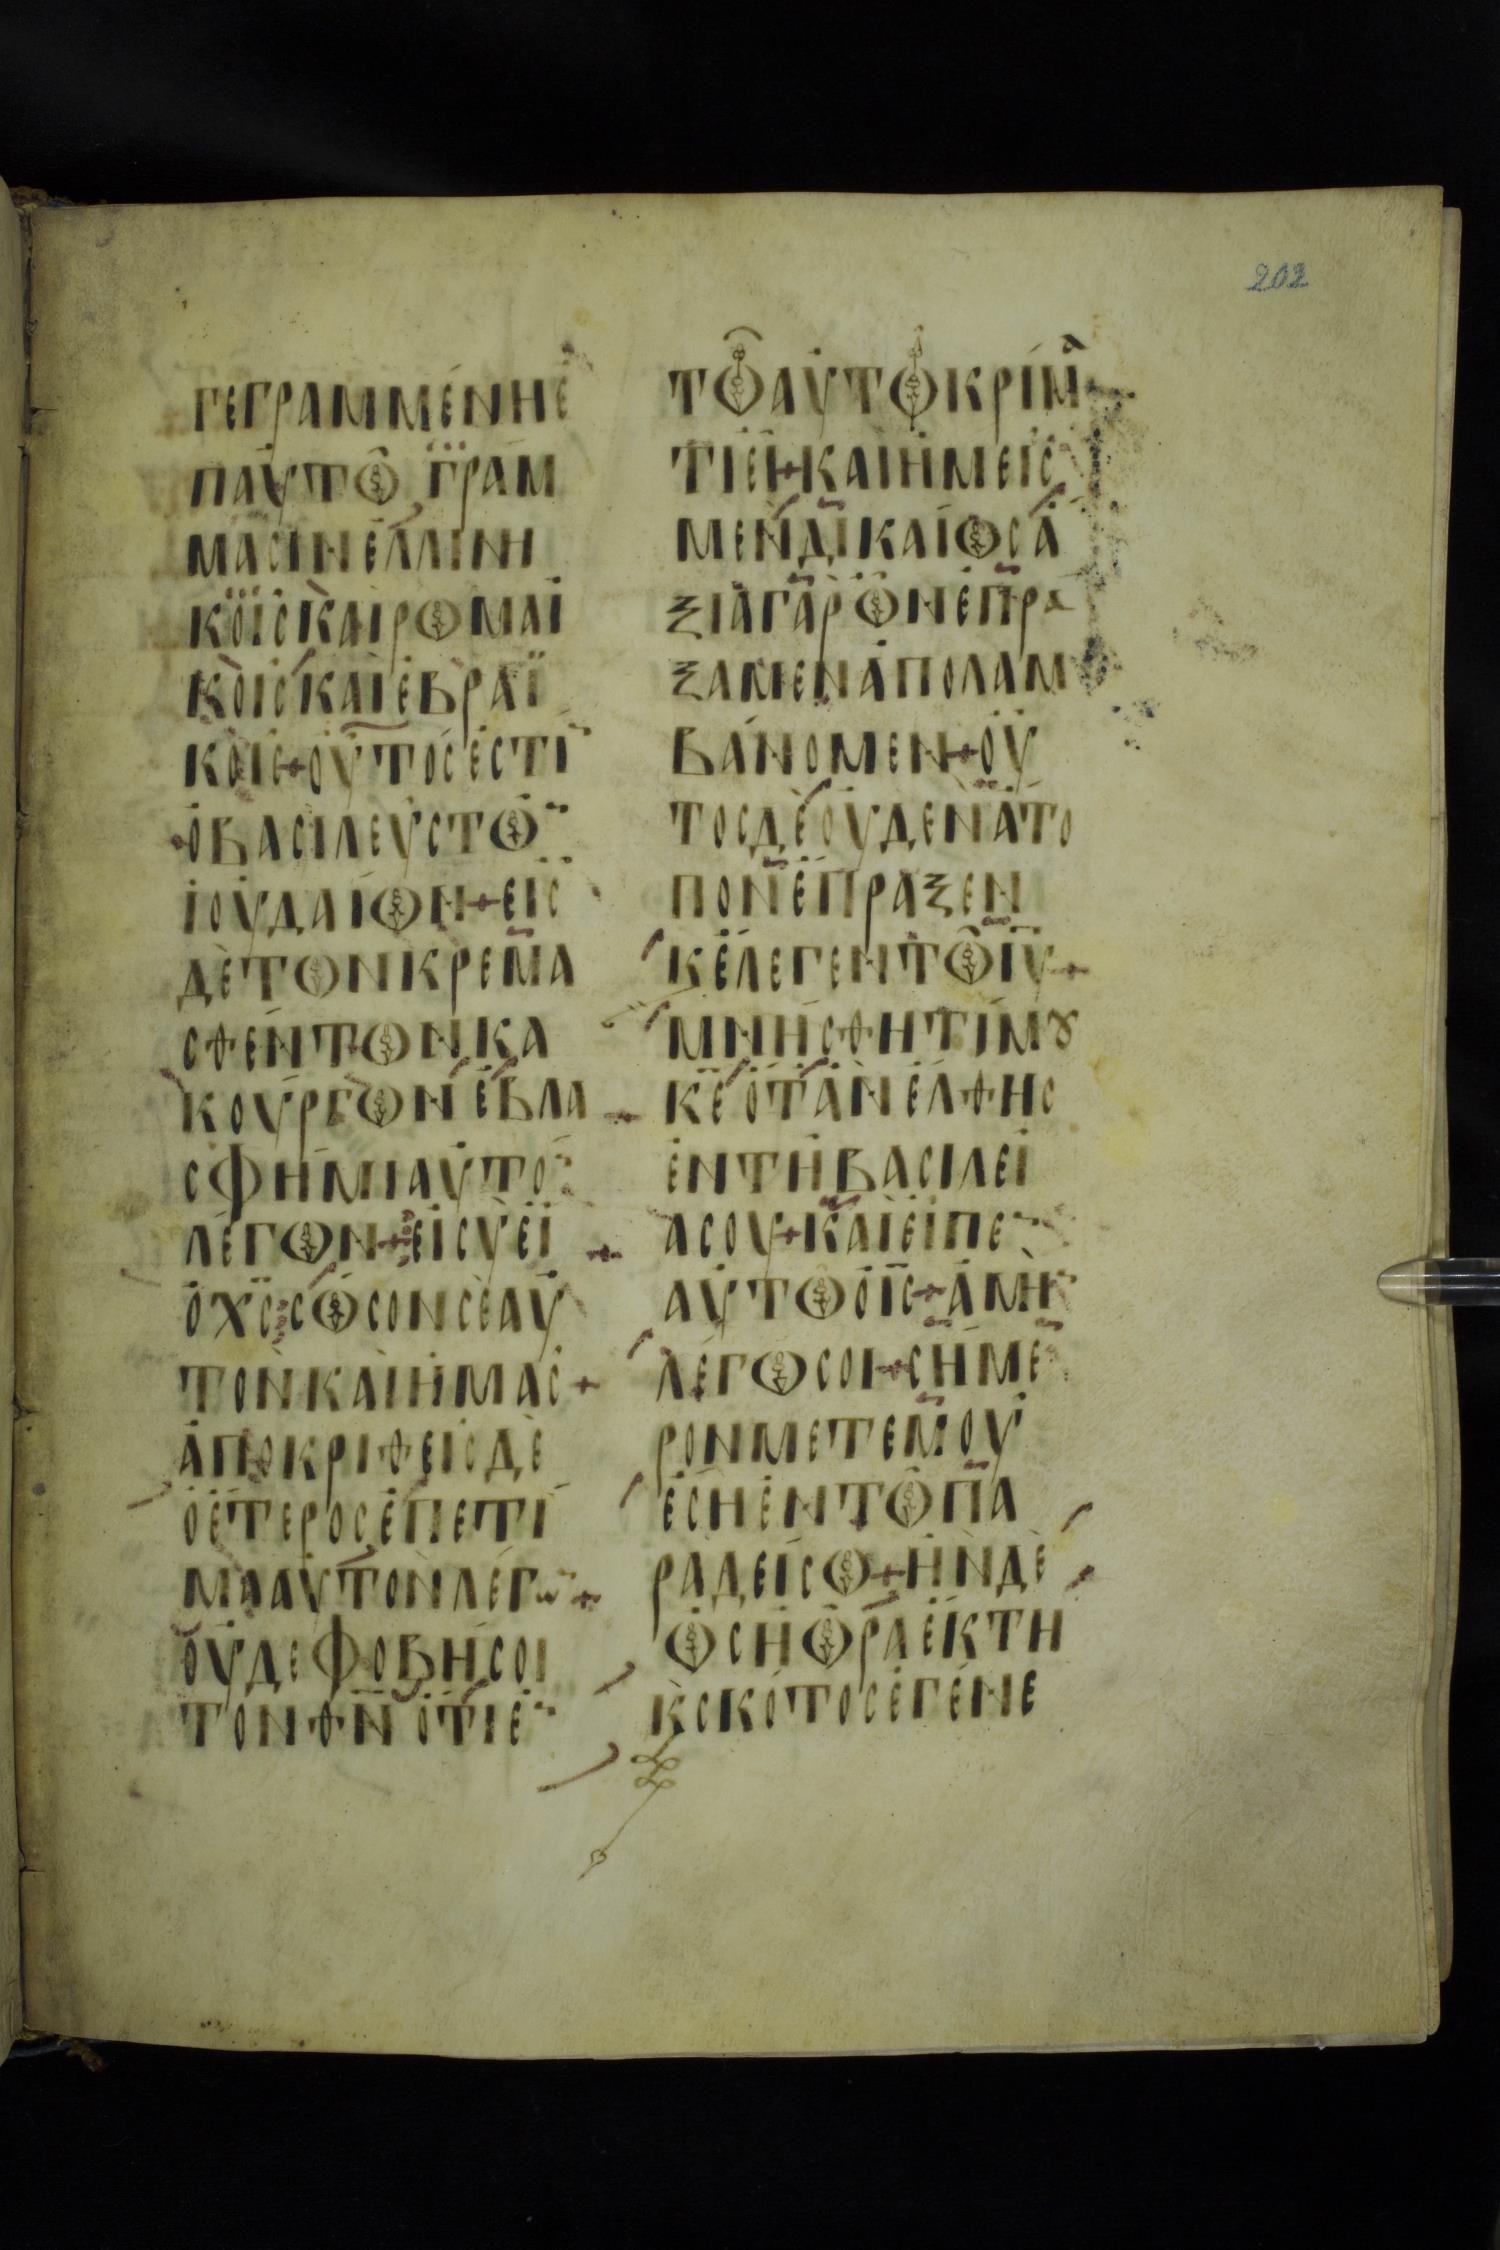 202
ΓΕΓΡΑΜΜΕΝΗΕ
ΠΑΥΤΩ ΓΡΑΜ
ΜΑCΙΝΕΛΛΙΝΗ
ΚΟΙCΚΑΙΡΩΜΑΙ
ΚΟΙCΚΑΙΕΒΡΑΪ
ΚΟΙC+ΟΥΤΟCΕCΤΙ̅
ΟΒΑCΙΛΕΥCΤΩ̅
ΙΟΥΔΑΙΩΝ+ΕΙC
ΔΕΤΩΝΚΡΕΜΑ
CΘΕΝΤΩΝΚΑ
ΚΟΥΡΓΩΝΕΒΛΑ
CΦΗΜΙΑΥΤΟ̅
ΛΕΓΩΝ+ΕΙCΥΕΙ
ΟΧ̅C̅CΩCΟΝCΕΑΥ
ΤΟΝΚΑΙΗΜΑC+
ΑΠΟΚΡΙΘΕΙCΔΕ
ΟΕΤΕΡΟCΕΠΕΤΙ
ΜΑΑΥΤΟΝΛΕΓΩ̅+
ΟΥΔΕΦΟΒΗCΟΙ
ΤΟΝΘ̅Ν̅ΟΤΙΕ̅
ΤΩΑΥΤΩΚΡΙΜΑ
ΤΙΕΙ+ΚΑΙΗΜΕΙC
ΜΕΝΔΙΚΑΙΩCΑ
ΞΙΑΓΑΡΩΝΕΠΡΑ
ΞΑΜΕΝΑΠΟΛΑΜ
ΒΑΝΟΜΕΝ+ΟΥ
ΤΟCΔΕΟΥΔΕΝΑΤΟ
ΠΟΝΕΠΡΑΞΕΝ
ΚΕΛΕΓΕΝΤΩΙ̅Υ̅+
ΜΝΗCΘΗΤΙΜȢ
Κ̅Ε̅ΟΤΑΝΕΛΘΗC
ΕΝΤΗΒΑCΙΛΕΙ
ΑCΟΥ+ΚΑΙΕΙΠΕ̅
ΑΥΤΩΟΙ̅C̅+ΑΜΗ̅
ΛΕΓΩCΟΙ+CΗΜΕ
ΡΟΝΜΕΤΕΜΟΥ
ΕCΗΕΝΤΩΠΑ
ΡΑΔΕΙCΩ+ΗΝΔΕ
ΩCΗΩΡΑΕΚΤΗ
ΚCΚΟΤΟCΕΓΕΝΕ